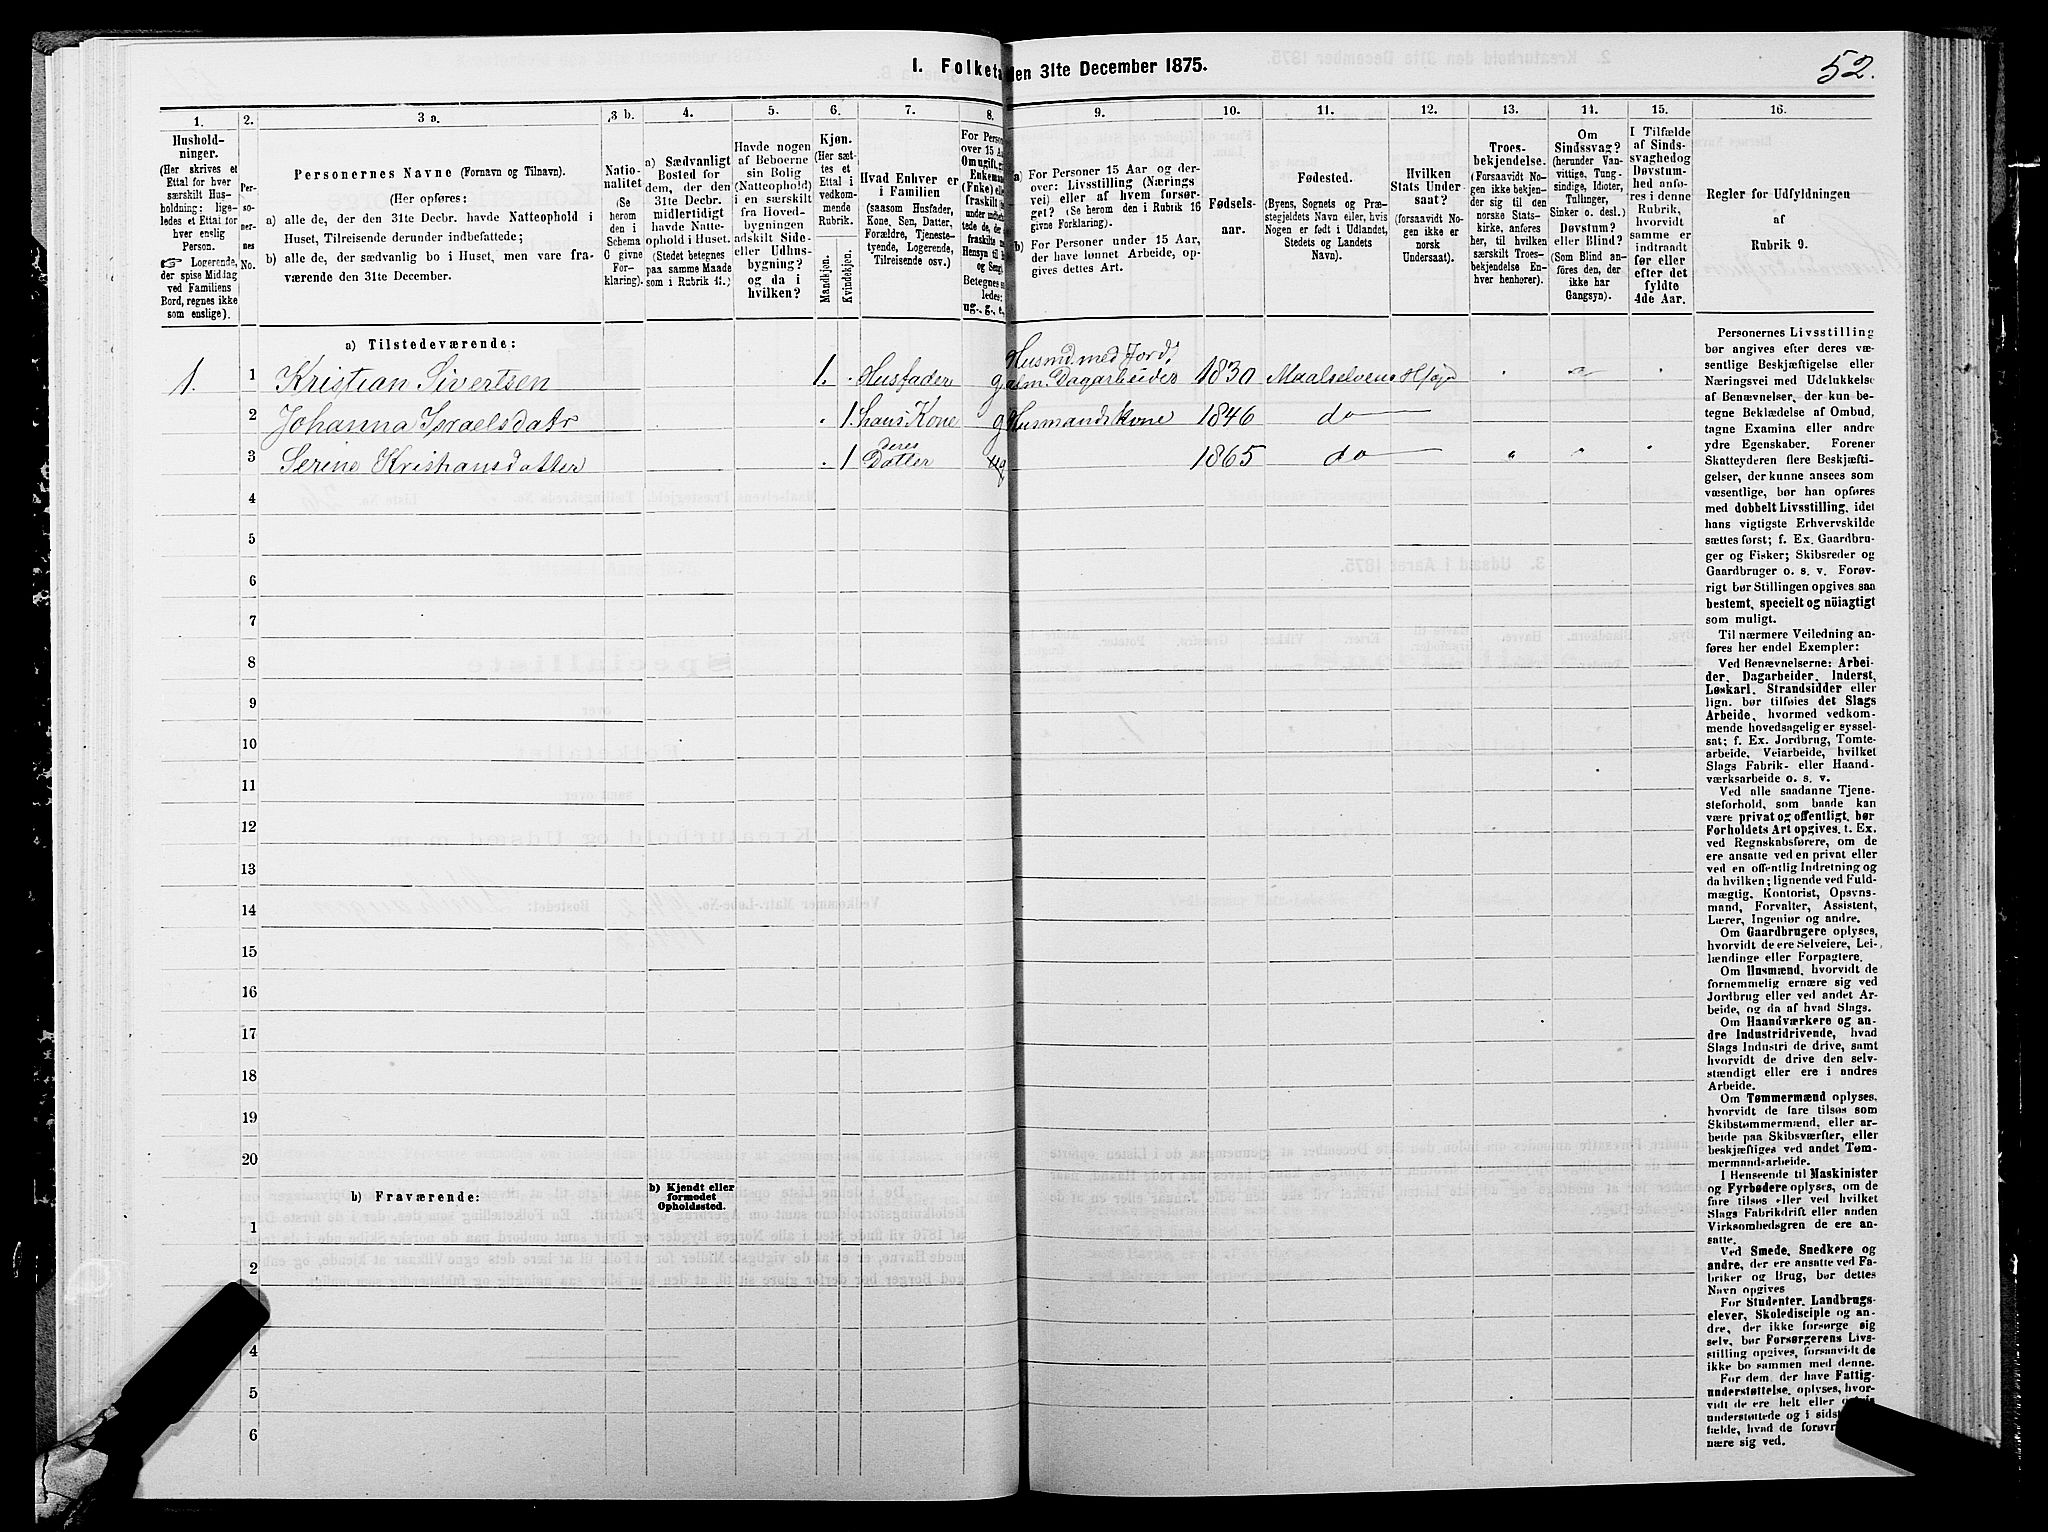 I. Folketa
den 31te December 1875.
52.
1.
2.
3 a.
3 b.
4.
5.
6.
7.
8.
9.
10.
11.
12.
13.
14.
15.
16.
Hushold-
ninger.
(Her skrives et
Ettal for hver
særskilt Hus-
holdning: lige-
ledes et Ettal for
hver enslig
Person.
☞ Logerende,
der spise Middag
ved Familiens
Bord, regnes ikke
som enslige).
Per-
so-
ner-
nes
No.
Personernes Navne (Fornavn og Tilnavn).
(Her opføres:
a) alle de, der den 31te Decbr. havde Natteophold i
Huset, Tilreisende derunder indbefattede;
b) alle de, der sædvanlig bo i Huset, men vare fra-
værende den 31te December.
Natio-
nalitet
(Se
herom
den i
Schema
C givne
For-
klaring).
a) Sædvanligt
Bosted for
dem, der den
31te Decbr.
midlertidigt
havde Natte-
ophold i Huset.
(Stedet betegnes
paa samme Maade
som i Rubrik 11.)
Havde nogen
af Beboerne
sin Bolig
(Natteophold)
i en særskilt
fra Hoved-
bygningen
adskilt Side-
eller Udhus-
bygning?
og da i
hvilken?
Kjøn.
(Her sæt-
tes et
Ettal i
vedkom-
mende
Rubrik.
Mandkjøn.
Kvindekjøn.
Hvad Enhver er
i Familien
(saasom Husfader,
Kone, Søn, Datter,
Forældre, Tjeneste-
tyende, Logerende,
Tilreisende osv.)
For Person
over 15 Aa
Om ugift, g
Enkemand
(Fnke) elle
fraskilt
Betegnes s
ledes:
ug., g., e.,
a) For Personer 15 Aar og der-
over: Livsstilling (Nærings
vei) eller af hvem forsør-
get? (Se herom den i Rubrik 16
givne Forklaring).
b) For Personer under 15 Aar,
der have lønnet Arbeide, op-
gives dettes Art.
Fødsels-
aar.
Fødested.
(Byens, Sognets og Præ-
stegjeldets Navn eller, hvis
Nogen er født i Udlandet,
Stedets og Landets
Navn).
Hvilken
Stats Under-
saat?
(forsaavidt No-
gen ikke er
norsk
Undersaat).
Troes-
bekjendelse.
(Forsaavidt No-
gen ikke bekjen-
der sig til den
norske Stats-
kirke, anføres
her, til hvilken
særskilt Troes-
bekjendelse En-
hver henhører).
Om
Sindssvag?
(herunder Van-
vittige, Tung-
sindige, Idioter,
Tullinger,
Sinker o. desl.)
Døvstum?
eller Blind?
(Som Blind an-
føres den, der
ikke har
Gangsyn).
I Tilfælde
af Sinds-
svaghedog
Døvstum-
hed anfø-
res i denne
Rubrik,
hvorvidt
samme er
indtraadt
før eller
efter det
fyldte
4de Aar.
Regler for Udfyldningen
af
Rubrik 9.
a) Tilstedeværende:
1. 1 Kristian Sivertsen 1. Husfader g Husmd. med Jord, Dagarbeider 1830 Maalselvens
2 Johanna Israelsdatr 1. hans Kone g Husmandskone 1846 do
3 Serine Kristiansdatter 1 deres Datter ug 1865 do
4
5
6
7
8
9
10
11
12
13
14
15
16
17
18
19
20
b) Fraværende:
b) Kjendt eller
formodet
Opholdssted.
1
2
4
5
6
Personernes Livsstilling
bør angives efter deres væ-
sentlige Beskjæftigelse eller
Næringsvei med Udelukkelse
af Benævnelser, der kun be-
tegne Beklædelse af Ombud,
tagne Examina eller andre
ydre Egenskaber. Forener
Skatteyderen flere Beskjæfti-
gelser, der kunne ansees som
væsentlige, bør han opføres
med dobbelt Livsstilling, idet
hans vigtigste Erhvervskilde
sættes først; f. Ex. Gaardbru-
ger og Fisker; Skibsreder og
Gaardbruger o. s. v. Forøv-
rigt bør Stillingen opgives saa
bestemt, specielt og nöiagtigt
som muligt.
Til nærmere Veiledning an-
føres her endel Exempler:
Ved Benævnelserne: Arbei-
der, Dagarbeider, Inderst,
Løskarl, Strandsidder eller
lign. bør tilføies det Slags
Arbeide, hvormed vedkom-
mende hovedsagelig er syssel-
sat; f. Ex. Jordbrug, Tomte-
arbeide, Veiarbeide, hvilket
Slags Fabrik- eller Haand-
værksarbeide o. s. v.
Ved alle saadanne Tjene-
steforhold, som baade kan
være privat og offentligt, bør
Forholdets Art opgives. t. Ex.
ved Regnskabsførere, om de
ere ansatte ved en privat eller
ved en offentlig Indretning og
da hvilken; lignende ved Fuld-
mægtig, Kontorist, Opsyns-
mand, Forvalter, Assistent,
Lærer, Ingeniør og andre.
Om Gaardbrugere oplyses,
hvorvidt de ere Selveiere, Lei-
lændinge eller Forpagtere.
Om Husmænd, hvorvidt de
fornemmelig ernære sig ved
Jordbrug eller ved andet Ar-
beide, og da af hvad Slags.
Om Haandværkere og an-
dre Industridrivende, hvad
Slags Industri de drive, samt
hvorvidt de drive den selv-
stændigt eller ere i andres
Arbeide.
Om Tømmermænd oplyses,
hvorvidt de fare tilsøs som
Skibstømmermænd, eller ar-
beide paa Skibsværfter, eller
beskjæftiges ved andet Tøm-
mermandsarbeide.
I Henseende til Maskinister
og Fyrbødere oplyses, om de
fare tilsøs eller ved hvilket
Slags Fabrikdrift eller anden
Virksomhedsgren de ere an-
satte.
Ved Smede, Snedkere og
andre, der ere ansatte ved Fa-
briker og Brug, bør dettes
Navn opgives
For Studenter, Landbrugs-
elever, Skoledisciple og an-
dre, der ikke forsørge sig
selv, bør Forsørgerens Livs-
stilling opgives, forsaavidt de
ikke bo sammen med denne.
For dem, der have Fattig-
understøttelse, oplyses, hvor-
vidt de ere helt eller
understøttede og i sidst
fælde, hvad de forøvr
nære sig ved.